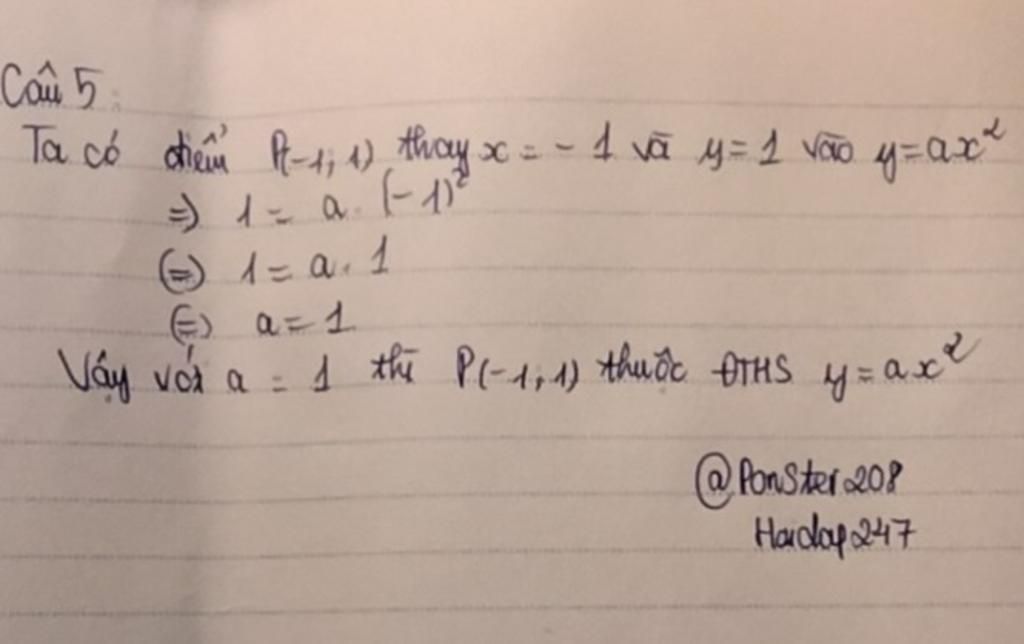 Câu 5:
Ta có điểm P(-1; 1) thay x = - 1 và y = 1 vào y = ax²
=> 1 = a. (-1)²
(=) 1 = a. 1
(=) a = 1
Vậy với a = 1 thì P(-1; 1) thuộc ĐTHS y = ax²
@PonSter208
Hoidap247